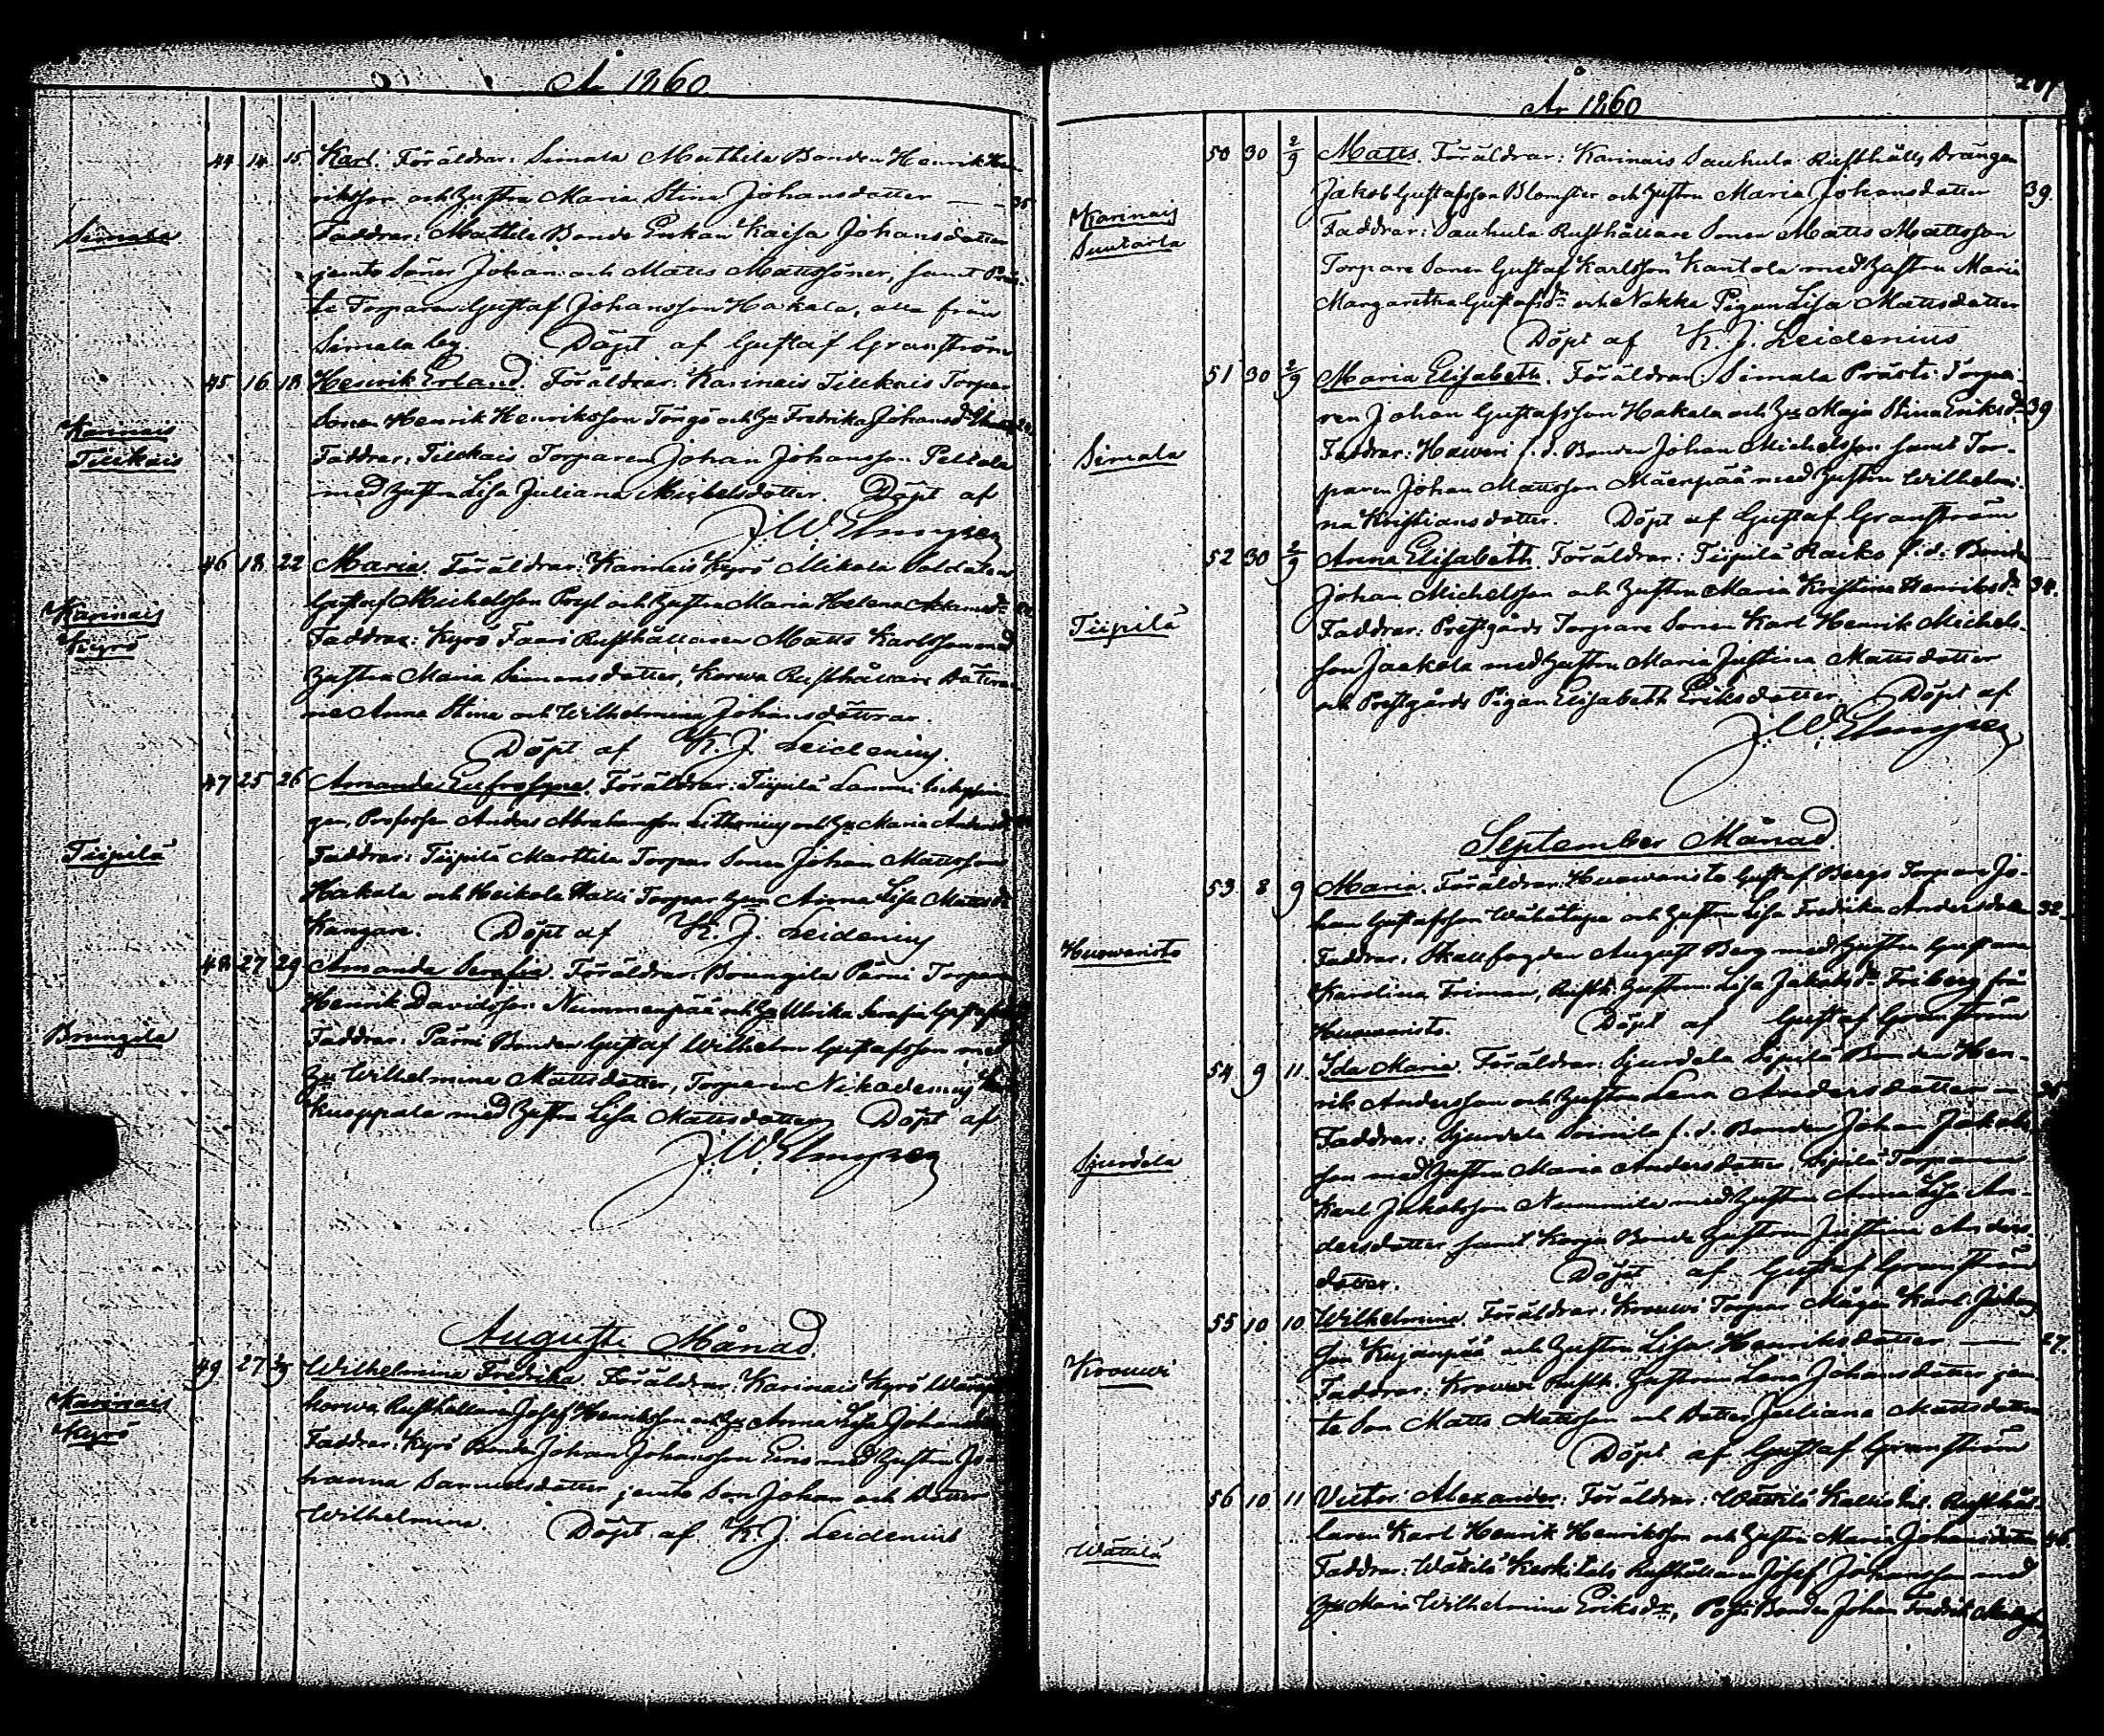 År 1860
44 14 15 Karl. Föräldrar: Simala Mathila Bonden Henrik Hen-
riksson och hustru Maria Stina Johansdotter — 35
Simala
Faddrar: Mathila Bonde Enkan Kaisa Johansdotter
jemte Söner Johan och Matts Mattssöner, samt Präs-
te Torparen Gustaf Johansson Hakala, alla från
Simala by. Döpt af Gustaf Granström
45 16 18 Henrik Erland. Föräldrar: Karinais Tilckais Torpar
Karinais
Tilckais
Sonen Henrik Henriksson Töngö och Hu Fredrika Johansdr
Faddrar: Tilckais Torparen Johan Johansson Peltola
med hustru Lisa Juliana Michelsdotter. Döpt af
J. W. Elmgren
46 18 22 Maria. Föräldrar: Karinais Kyrö Mikola Soldaten
Karinais
Kyrö
Gustaf Michelsson Pryl och hustru Maria Helena Adamsdr
Faddrar: Kyrö Faari Rusthållaren Matts Karlsson med
hustru Maria Simonsdotter, Korwa Rusthållare Döttrar-
ne Anna Stina och Wilhelmina Johansdöttrar.
Döpt af K. J. Leidenius.
47 25 26 Amanda Eufrosyne. Föräldrar: Tiipilä Lammi
Tiipilä
Anders Abrahamsson och Hu Maria Andersdr
Faddrar: Tiipilä Marttila Torpar Sonen Johan Mattsson
Hakala och Heikola Torpar Hun Anna Lisa Mattsdr
Kangare. Döpt af K. J. Leidenius
48 27 29 Amanda Serafia. Föräldrar: Brungila Pärni Torparen
Brungila
Henrik Davidsson Nummenpää och Hu Ulrika Serafia
Faddrar: Pärni Bonden Gustaf Wilhelm Gustafsson med
Hu Wilhelmina Mattsdotter, Torparen Nikodemus
Kuoppala med hustru Lisa Mattsdotter. Döpt af
J. W. Elmgren
Augusti Månad.
49 27 Wilhelmina Fredrika. Föräldrar: Karinais Kyrö
Karinais
Kyrö
korwa Rusthållaren Josef Henriksson och Hu Anna Lisa Johansdr
Faddrar: Kyrö Bonden Johan Johansson Eino med hustru Jo-
hanna Samuelsdotter jemte Son Johan och Dotter
Wilhelmina. Döpt af K. J. Leidenius
År 1860
50 30 2/9 Matts. Föräldrar: Karinais Sauhula Rusthålls Drängen
Karinais
Suutarla
Jakob Gustafsson Blomster och hustru Maria Johansdotter 39.
Faddrar: Sauhula Rusthållare Sonen Matts Mattsson
Torpare Sonen Gustaf Karlsson Kantola med hustru Maria
Margaretha Gustafsdr och Nokka Pigan Lisa Mattsdotter
Döpt af K. J. Leidenius
51 30 2/9 Maria Elisabeth. Föräldrar: Simala Prästi Torpa-
ren Johan Gustafsson Hakala och Hu Maja Stina Eriksdr 39
Simala
Faddrar: Haweri f. d. Bonden Johan Michelsson samt Tor-
paren Johan Mattsson Mäenpää med hustru Wilhelmi-
na Kristiansdotter. Döpt af Gustaf Granström
52 30 2/9 Anna Elisabeth. Föräldrar: Tiipilä Raiko f. d. Bonden
Tiipilä
Johan Michelsson och hustru Maria Kristina Henriksdr 34.
Faddrar: Prestgårds Torpare Sonen Karl Henrik Michels-
son Jaakola med hustru Maria Justina Mattsdotter
och Prestgårds Pigan Elisabeth Eriksdotter. Döpt af
J. W. Elmgren
September Månad.
53 8 9 Maria. Föräldrar: Huowaristo Gustaf Bergs Torpare Jo-
han Gustafsson Wähätupa och hustru Lisa Fredrika Andersdotter 32
Huowaristo
Faddrar: Skallfogden August Berg med hustru Gustava
Karolina Friman, Rusth. hustrun Lisa Jakobsdr Friberg från
Huowaristo. Döpt af Gustaf Granström
54 9 11. Ida Maria. Föräldrar: Sjurdela Sipilä Bonden Hen-
rik Andersson och hustru Lena Andersdotter —
Faddrar: Sjurdela Soinila f. d. Bonden Johan Jakobs-
Sjurdela
son med hustru Maria Andersdotter, Sipilä Torparen
Karl Jakobsson Nummila med hustru Anna Lisa An-
dersdotter samt Karju Bonde hustrun Justina Anders-
dotter. Döpt af Gustaf Granström
55 10 10 Wilhelmina. Föräldrar: Krouwi Torpar Mågen Karl Johans-
son Kujanpää och hustru Lisa Henriksdotter — 27.
Krouwi
Faddrar: Krouwi Rusth. hustrun Lena Johansdotter jem-
te Son Matts Mattsson och Dotter Juliana Mattsdotter
Döpt af Gustaf Granström
56 10 11 Victor Alexander. Föräldrar: Wättilä Kallis Rusthål-
laren Karl Henrik Henriksson och hustru Maria Johansdotter 46.
Wättilä
Faddrar: Wättilä Keskitalo Rusthållaren Josef Johansson med
Hu Maria Wilhelmina Eriksdr, Bonden Johan Fredrik